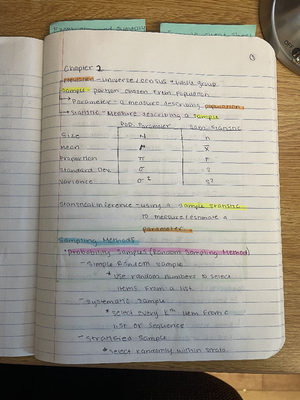 Chapter 2
Population - universe/census + whole group
Sample - portion chosen from population
Parameter - a measure describing population
Statistic - Measure describing a sample
Pop. Parameter Sam. Statistic
Size N n
Mean μ x̄
Proportion π p
Standard Dev. σ s
Variance σ² s²
Statistical inference - using a sample statistic
to measure/estimate a
parameter.
Sampling Methods
Probability Samples (Random Sampling Method)
- Simple Random Sample
* Use random numbers to select
items from a list
- Systematic Sample
* Select every kth item from a
list or sequence
- Stratified Sample
* Select randomly within strata.